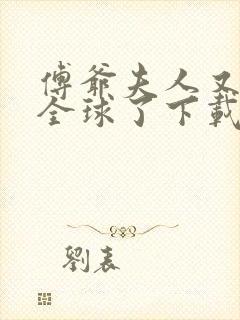 傅爺夫人又
全球了下載
劉表